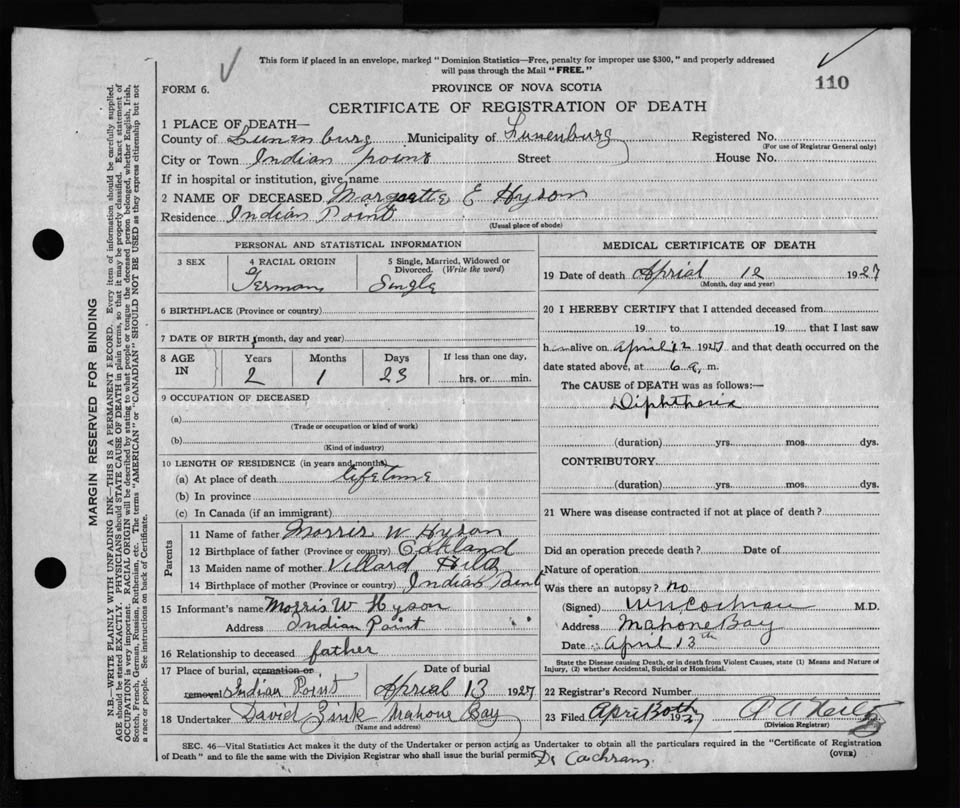 This form if placed in an envelope, marked "Dominion Statistics—Free, penalty for improper use $300," and properly addressed
will pass through the Mail "FREE."
110
FORM 6.
PROVINCE OF NOVA SCOTIA
CERTIFICATE OF REGISTRATION OF DEATH
1 PLACE OF DEATH—
County of Lunenburg Municipality of Lunenburg Registered No.
(For use of Registrar General only)
City or Town Indian Point Street House No.
If in hospital or institution, give name
2 NAME OF DECEASED Margrette E Hyson
Residence Indian Point
(Usual place of abode)
PERSONAL AND STATISTICAL INFORMATION
3 SEX 4 RACIAL ORIGIN 5 Single, Married, Widowed or
Divorced. (Write the word)
German Single
6 BIRTHPLACE (Province or country)
7 DATE OF BIRTH (month, day and year)
8 AGE IN Years Months Days If less than one day,
2 1 23 hrs. or min.
9 OCCUPATION OF DECEASED
(a)
(Trade or occupation or kind of work)
(b)
(Kind of industry)
10 LENGTH OF RESIDENCE (in years and months)
(a) At place of death lifetime
(b) In province
(c) In Canada (if an immigrant)
Parents
11 Name of father Morris W Hyson
12 Birthplace of father (Province or country) Oakland
13 Maiden name of mother Villard Hiltz
14 Birthplace of mother (Province or country) Indian Point
15 Informant's name Morris W Hyson
Address Indian Point
16 Relationship to deceased father
17 Place of burial, cremation or Date of burial
removal Indian Point Aprial 13 1927
18 Undertaker David Zink Mahone Bay
(Name and address)
MEDICAL CERTIFICATE OF DEATH
19 Date of death Aprial 12 1927
(Month, day and year)
20 I HEREBY CERTIFY that I attended deceased from
19 to 19 that I last saw
h alive on April 12 1927 and that death occurred on the
date stated above, at 6 a. m.
The CAUSE of DEATH was as follows:—
Diphtheria
(duration) yrs. mos. dys.
CONTRIBUTORY
(duration) yrs. mos. dys.
21 Where was disease contracted if not at place of death?
Did an operation precede death? Date of
Nature of operation
Was there an autopsy? no
(Signed) W N Cochran M.D.
Address Mahone Bay
Date April 13th
State the Disease causing Death, or in death from Violent Causes, state (1) Means and Nature of
Injury, (2) whether Accidental, Suicidal or Homicidal.
22 Registrar's Record Number
23 Filed April 30th 1927
(Division Registrar)
SEC. 46—Vital Statistics Act makes it the duty of the Undertaker or person acting as Undertaker to obtain all the particulars required in the "Certificate of Registration
of Death" and to file the same with the Division Registrar who shall issue the burial permit. (OVER)
Dr Cochram
MARGIN RESERVED FOR BINDING
N.B.—WRITE PLAINLY WITH UNFADING INK—THIS IS A PERMANENT RECORD. Every item of information should be carefully supplied.
AGE should be stated EXACTLY. PHYSICIANS should STATE CAUSE OF DEATH in plain terms, so that it may be properly classified. Exact statement of
OCCUPATION is very important. RACIAL ORIGIN will be described by stating to what people or tongue the deceased person belonged, whether English, Irish,
Scotch, French, German, Russian, Ruthenian, etc. The terms "AMERICAN" or "CANADIAN" SHOULD NOT BE USED as they express citizenship but not
a race or people. See instructions on back of Certificate.